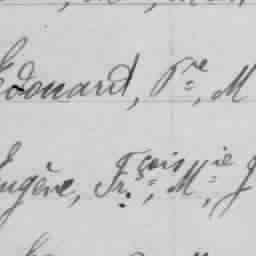 Edouard, Pre, M
Eugène, Frçois, Mie